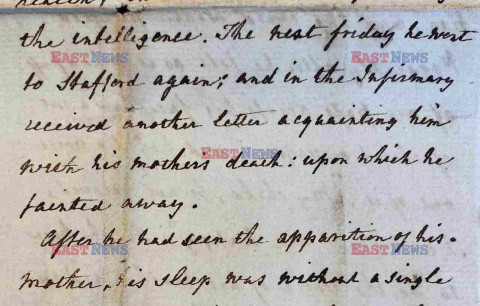 the intelligence. The next friday he went
to Stafford again; and in the Infirmary
received another letter acquainting him
with his mothers death: upon which he
fainted away.
After he had seen the apparition of his
mother, his sleep was without a single
EASTNEWS
EASTNEWS
EASTNEWS
EASTNEWS
EASTNEWS